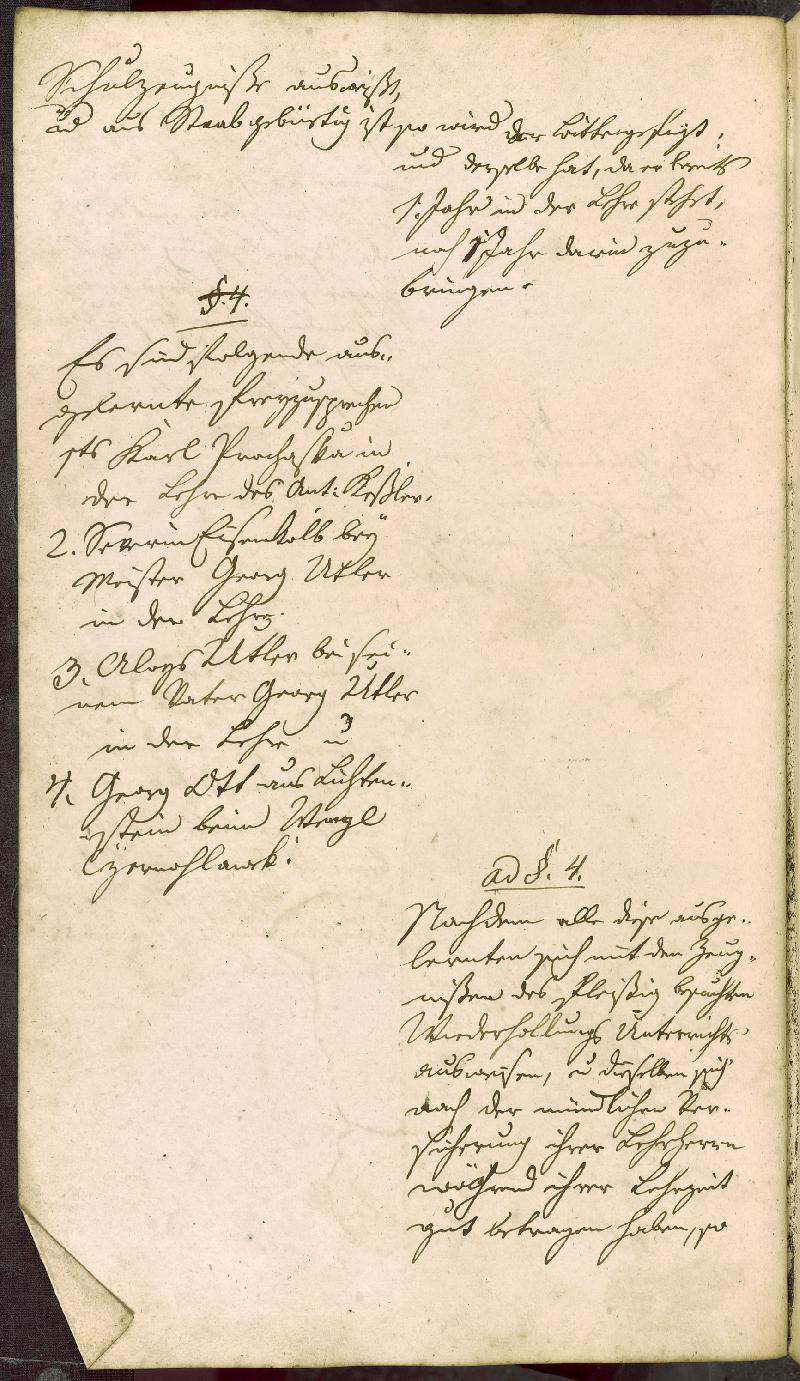 Schulzeugniße ausweißt,
und aus Staab gebürtig ist so wird der Bitte gefügt;
und derselbe hat, da er bereits
1. Jahr in der Lehre stehet,
noch 1 Jahr darin zuzu-
bringen.
§. 4.
Es sind folgende aus-
gelernte freyzusprechen
1ts Karl Prochaska in
der Lehre des Ant: Keßler.
2. Severin Eisenkolb bey
Meister Georg Utler
in der Lehre.
3. Aloys Utler bei sei-
nem Vater Georg Utler
in der Lehre u
4. Georg Ott aus Lichten-
stein beim Wenzl
Czernohlawek.
ad §. 4.
Nachdem alle diese ausge-
lernten sich mit den Zeug-
nißen des fleißig besuchten
Wiederhollungs Unterrichts
ausweisen, u dieselben sich
nach der mündlichen Ver-
sicherung ihrer Lehrherrn
während ihrer Lehrzeit
gut betragen haben, so